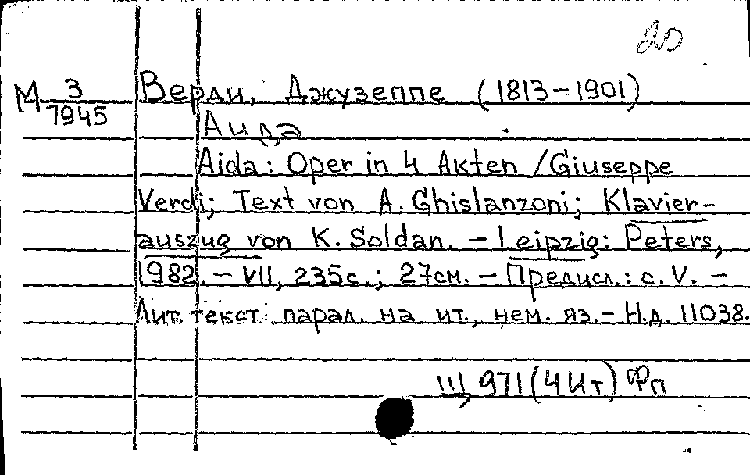 20
М 3/7945 Верди, Джузеппе (1813-1901)
Аида
Aida: Oper in 4 Akten / Giuseppe
Verdi; Text von A. Ghislanzoni; Klavier-
auszug von K. Soldan. - Leipzig: Peters,
1982. - VII, 235с.; 27см. - Предисл.: с. V. -
Лит. текст парал. на ит., нем. яз. - Н.д. 11038.
Ш 971(4Ит) Фп